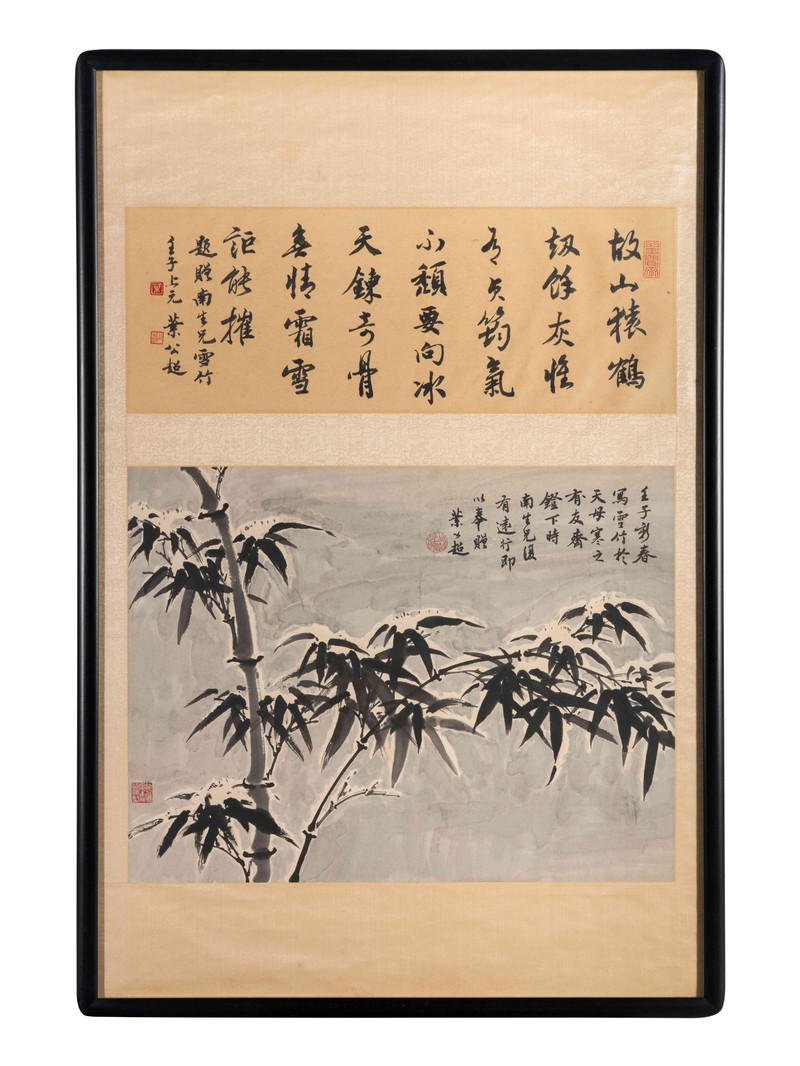 故山猿鶴
劫餘灰惟
有貞筠氣
不頹要向冰
天鍊奇骨
無情霜雪
詎能摧
題贈南生兄雪竹
壬子上元 葉公超
壬子新春
寫雪竹於
天母寒之
友齋
鐙下時
南生兄復
有遠行即
以奉贈
葉公超